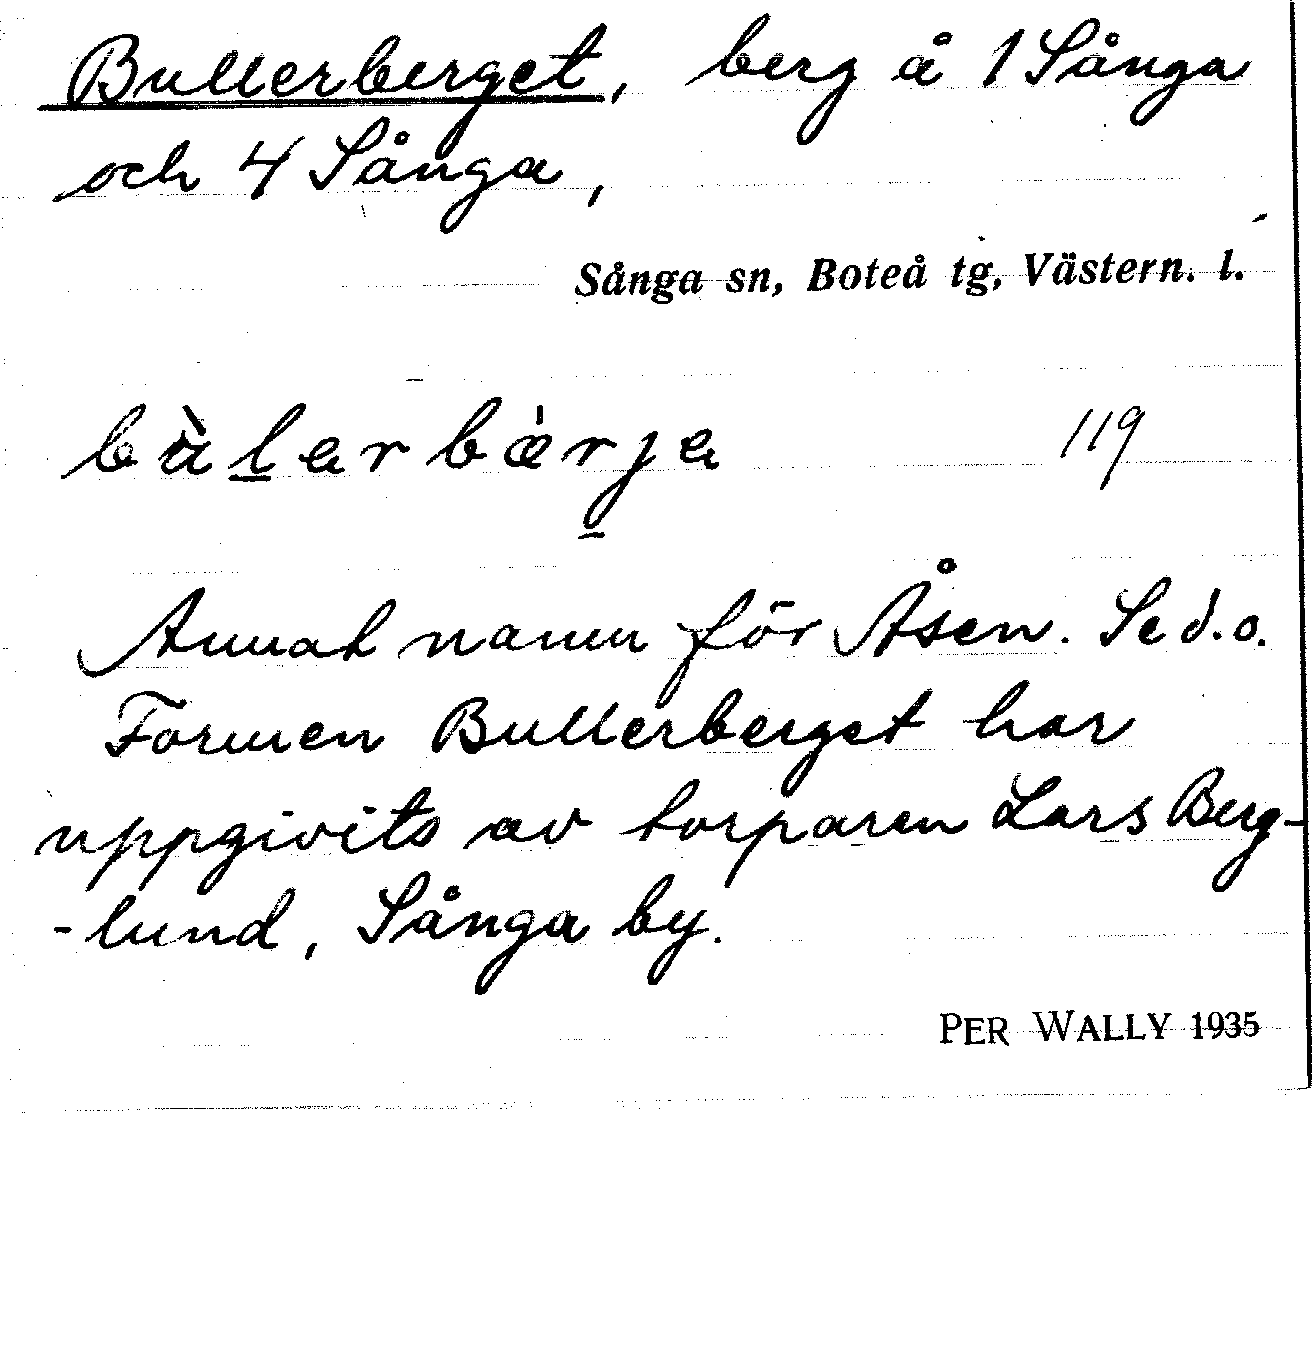 Bullerberget, berg å 1 Sånga
och 4 Sånga,
Sånga sn, Boteå tg, Västern. l.
119
Annat namn för Åsen. Se d.o.
Formen Bullerberget har
uppgivits av torparen Lars Berg-
-lund, Sånga by.
PER WALLY 1935